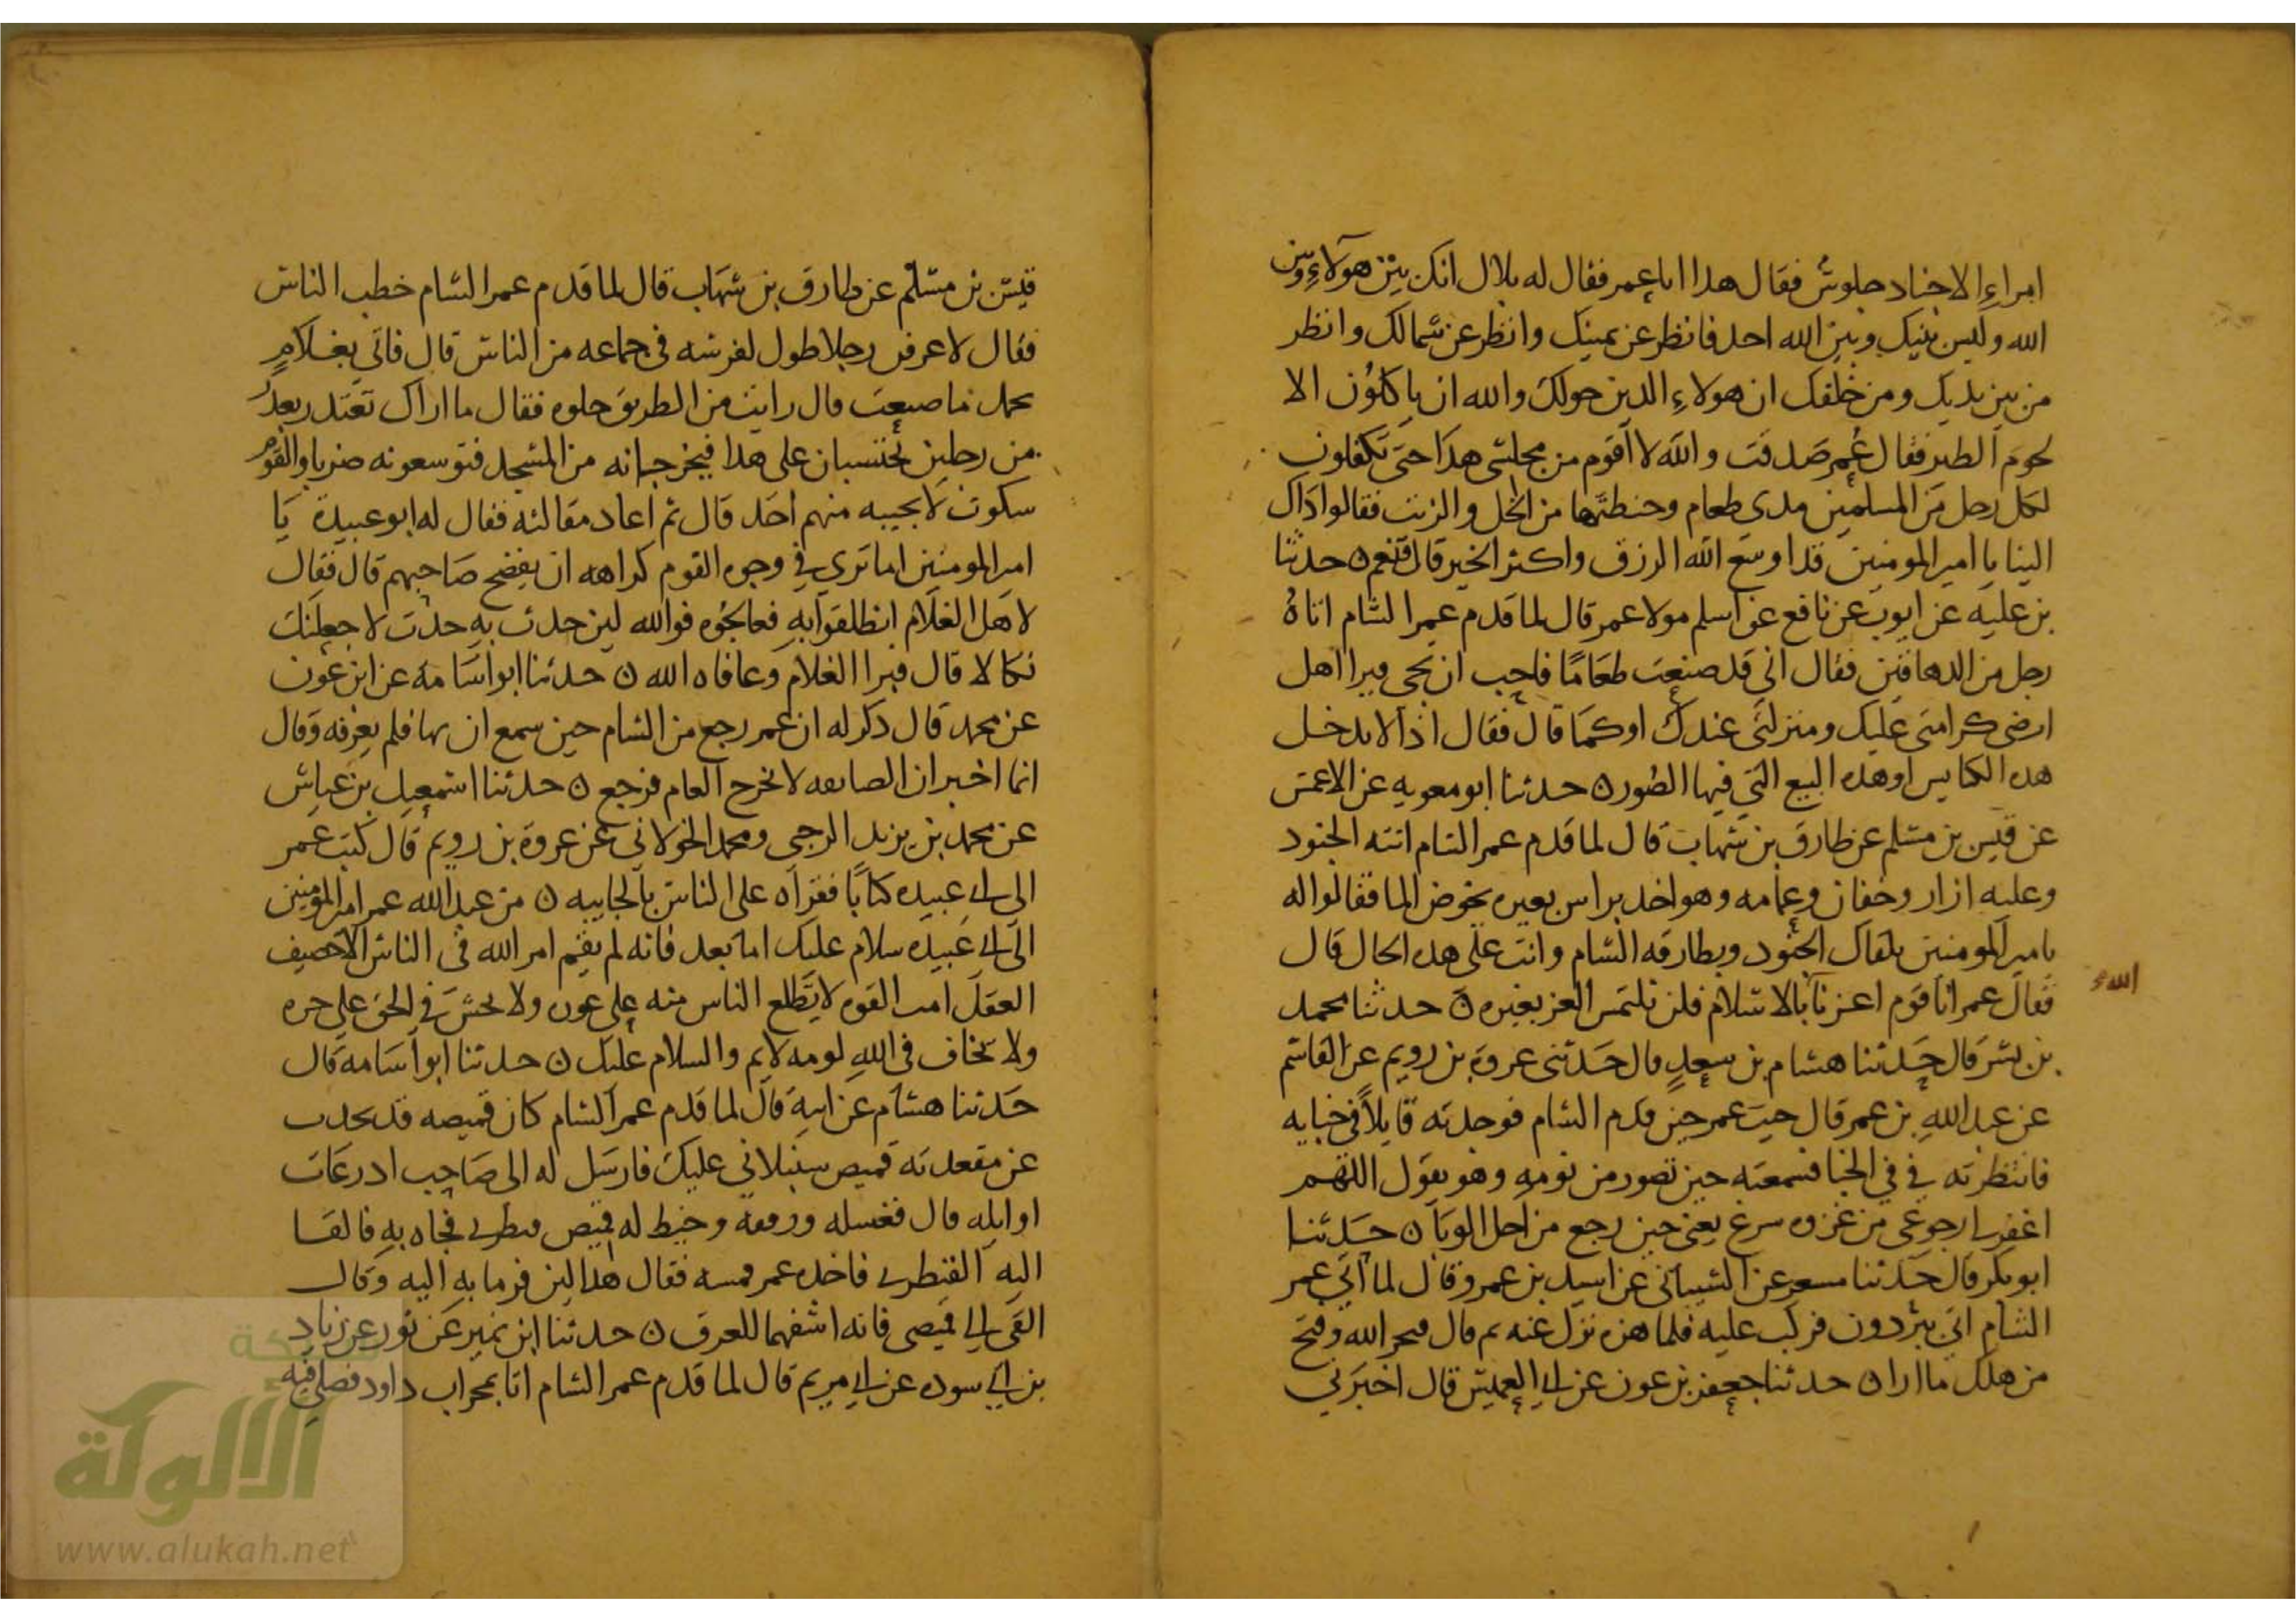 امراءِ الاجناد جلوسٌ فقال هدا اباعمر فقال له بلال انك بين هولاءِ وبين
الله وليس بينك وبين الله احد فانظر عن يمينك وانظر عن شمالك وانظر
من بين يديك ومن خلفك ان هولاءِ الدين حولك والله ان ياكلوُن الا
لحوم الطير فقال عُمر صَدقت والله لا اقوم من مجلسى هدا حتى تكفلون
لكل رجل من المسلمين مدى طعام وحنطتها من الخل والزيت فقالوا اداك
الينا يا امير المومنين قد اوسَع الله الرزق واكثر الخير قال فنعم ن حدثنا
بن عليه عن ايوب عن نافع عن اسلم مولا عمر قال لما قدم عمر الشام اتاهُ
رجل من الدهاقين فقال انى قد صنعت طعَامًا فاحب ان تجى فيرا اهل
ارضى كرامتى عَليك ومنزلتى عندك اوكمَا قال فقال اذًا لا يدخل
هده الكنايس اوهده البيع التى فيها الصُور ن حدثنا ابو معويه عن الاعمش
عن قيس بن مسلم عن طارق بن شهاب قال لما قدم عمر الشام اتته الجنود
وعليه ازار وخفان وعمامه وهو اخد براس بعيره يخوض الما فقالوا له
يا مير المومنين يلقاك الجنُود وبطارقه الشام وانت على هده الحال قال
فقال عمر انا قوم اعزنا بالاسلام فلن نلتمس العز بغيره ن حدثنا محمد
الله
بن بشر قال حَدثنا هشام بن سعدٍ قال حَدثنى عروة بن رويم عن القاسم
عن عبد اللهِ بن عمر قال جيت عمر حين قدم الشام فوجدته قايلاً فى خبايه
فانتظرته في في الخبا فسمعته حين تصور من نومهِ وهو يقول اللهم
اغفر لى رجوعى من غزوه سرغ يعنى حين رجع من اجل الوبا ن حَدثنا
ابو بكر قال حَدثنا مسعر عن الشيبانى عن اسيد بن عمرو قال لما اتى عمر
الشام اتى ببرْدون فركب عليه فلما هزه نزل عنه ثم قال قبحر الله وقبح
من هلك ما ارا ن حدثنا جعفر بن عون عن ابى العميس قال اخبَرنى
قيس بن مسلم عن طارق بن شهاب قال لما قدم عمر الشام خطب الناس
فقال لا عرفن رجلا طول لفرسه فى جماعه من الناس قال فاتى بغلامٍ
يحمل ما صنعت قال رايت من الطريق خلوه فقال ما اراك تعتدر بعدرُ
من رجلين تحتسبان على هدا فيخرجانه من المسجد فتوسعونه ضربا والقوم
سكوت لا يجيبه منهم احَد قال ثم اعاد مقالته فقال له ابو عبيدة يَا
امير المومنين اما ترى في وجوه القوم كراهه ان يفضح صَاحبهم قال فقال
لاهل الغلام انطلقوا به فعالجُوه فوالله لين حدث بهِ حدث لاجعلنك
نكالا قال فبرا الغلام وعافاه الله ن حدثنا ابو اسَامه عن ابن عون
عن محمد قال دكر له ان عمر رجع من الشام حين سمع ان بها فلم يعرفه وقال
انما اخبر ان الصايفه لا تخرج العام فرجع ن حدثنا اسمعيل بن عياش
عن محمد بن يزيد الرحبى ومحمد الخولاني عن عروة بن رويم قال كتب عمر
الى ابى عبيده كتابًا فقراه على الناس بالجابيه ن من عبد الله عمر امير المؤمنين
الى ابى عَبيده سلام عليك اما بعد فانه لم يقيم امر الله فى الناس الا حصيف
العقل القوه لا يَطلع الناس منه على عوره ولا يحنق فى الحق على جره
ولا يخاف فى اللهِ لومه لايم والسلام عليك ن حدثنا ابو اسَامه قال
حَدثنا هشام عن ابيه قال لما قدم عمر الشام كان قميصه قد تجدب
عن مقعدته قميص سنبلاني عليك فارسَل له الى صَاحب ادرعَات
او ايله قال فغسله ورقعه وخيط له قميص قبطرى فجاه به فالقا
اليه القبطرى فاخده عمر فمسه فقال هدا لين فرما بهِ اليه وقال
القى الى قميصى فانه اشفهما للعرق ن حدثنا ابن نمير عن ثور عن زياد
بن ابي سوده عن ابى مريم قال لما قدم عمر الشام اتا محراب داود فصلى فيه
شبكة
الألوكة
www.alukah.net